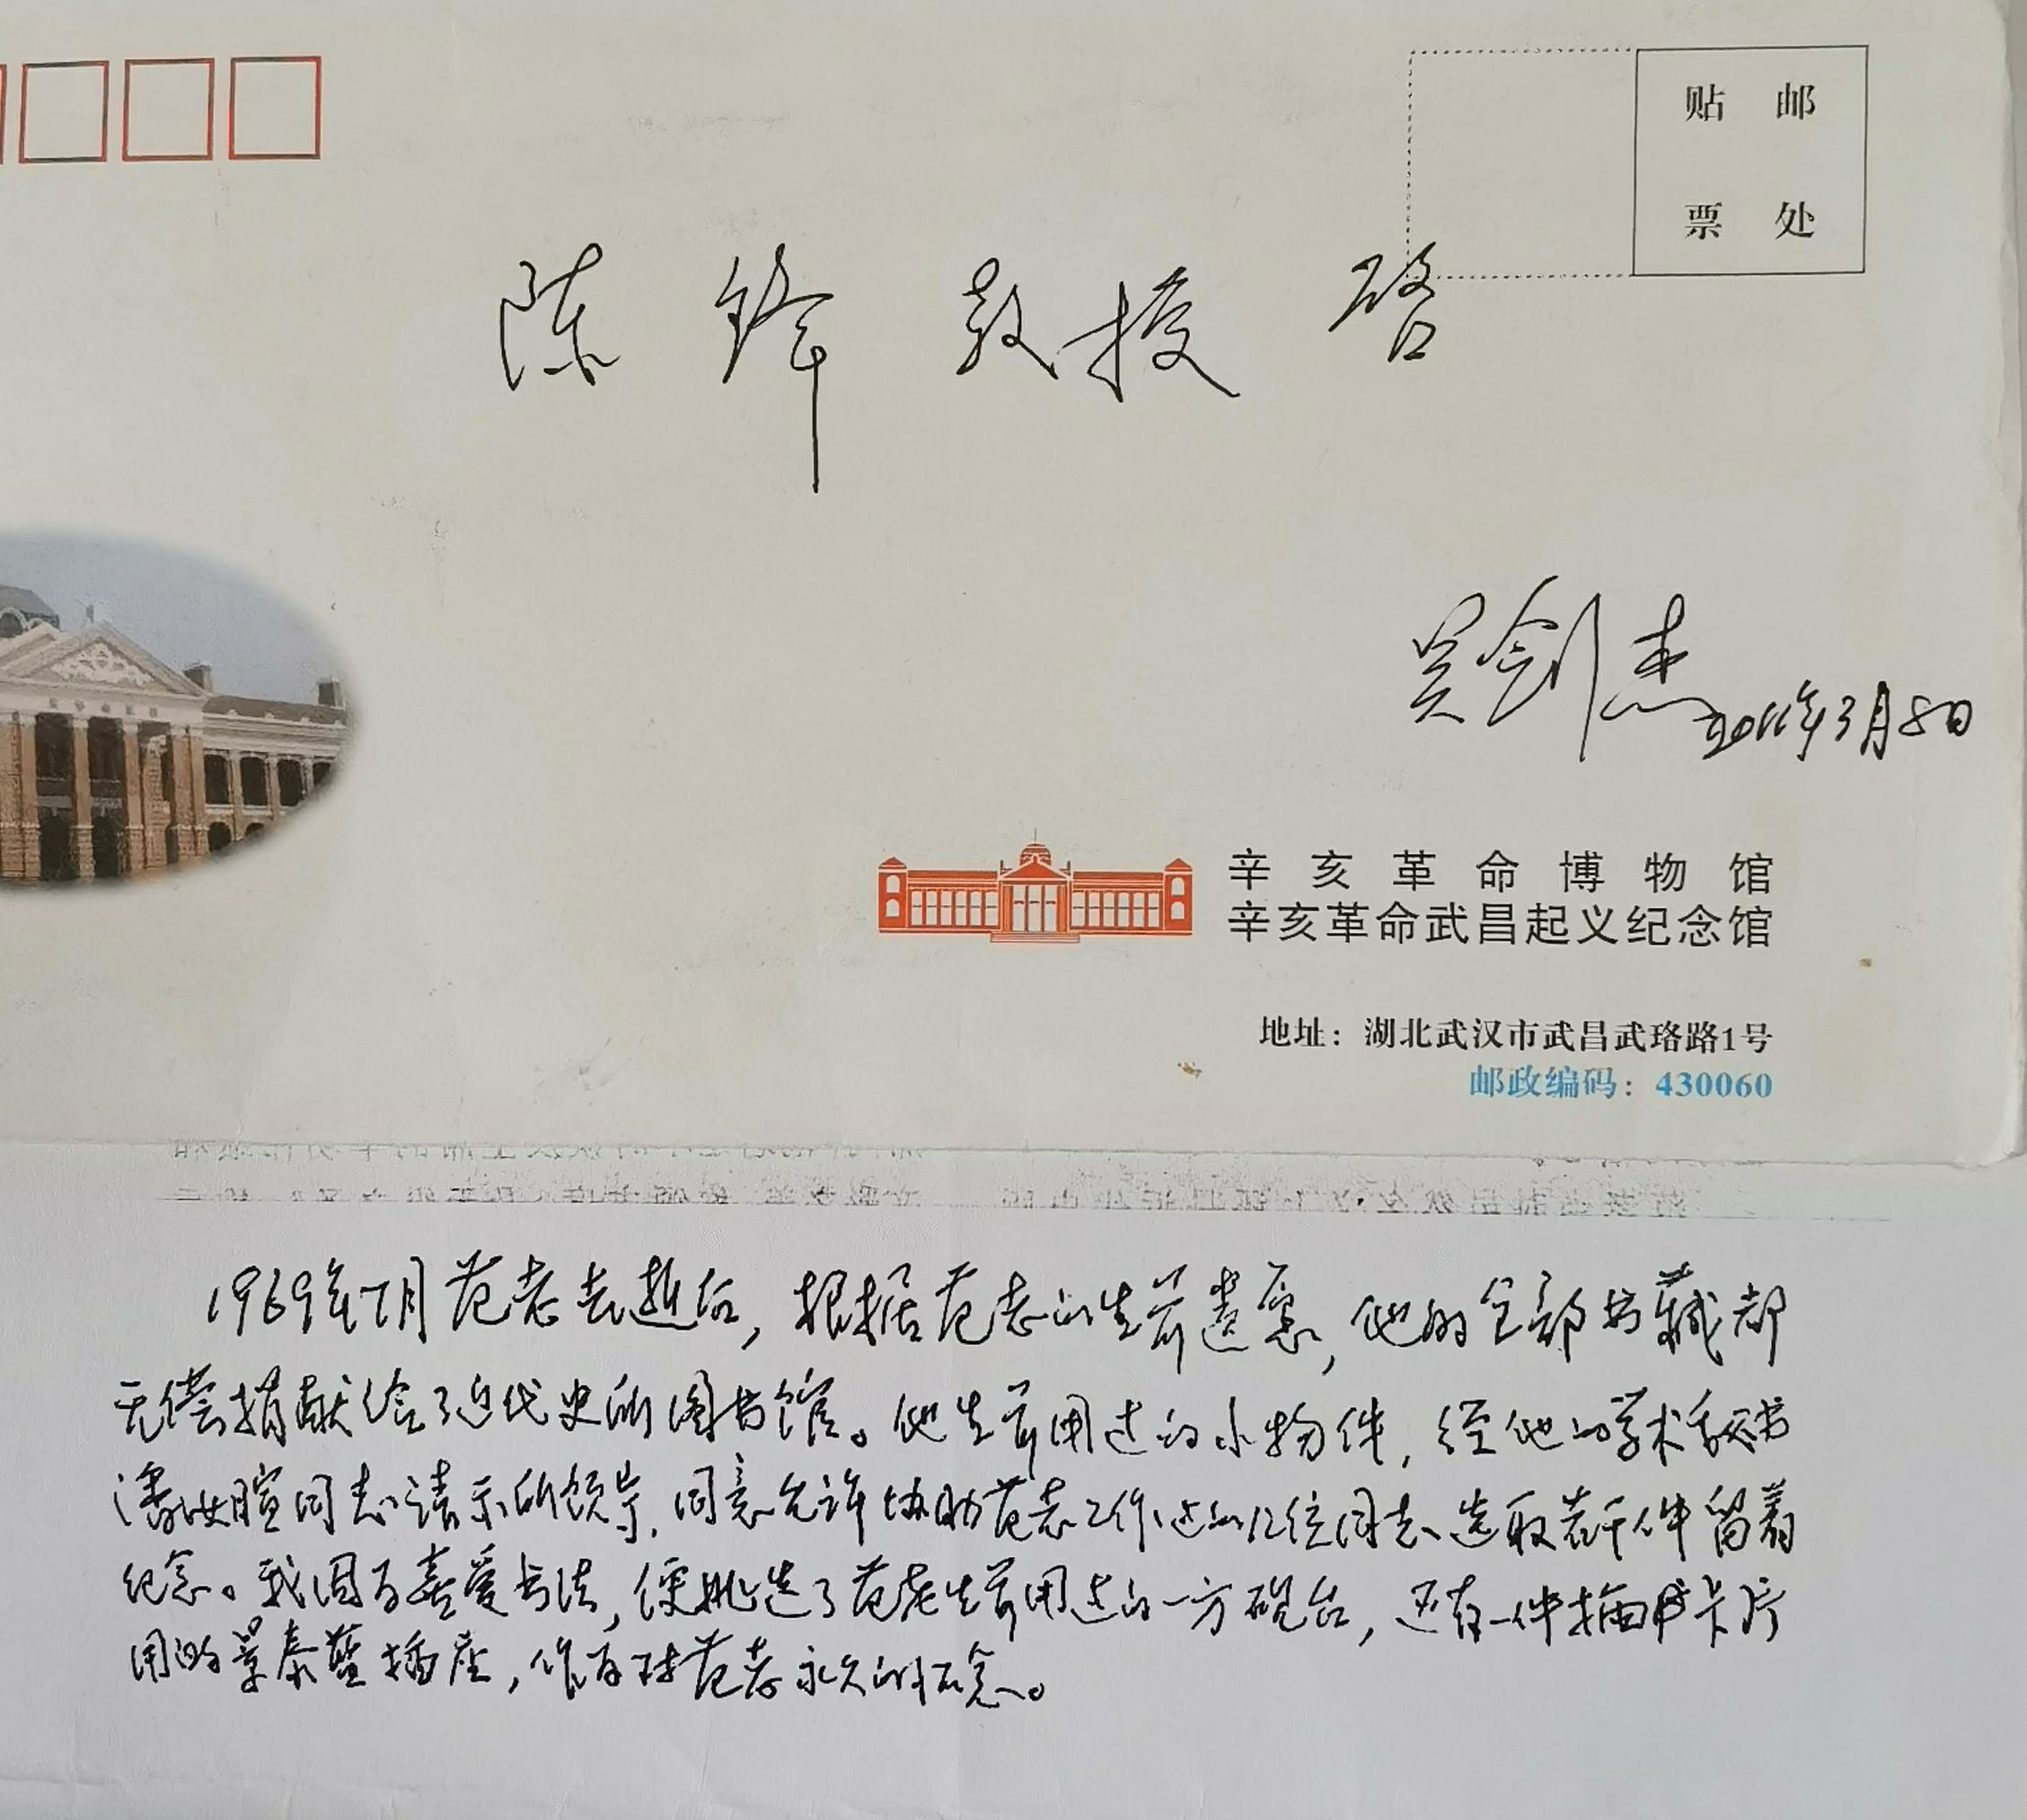 贴 邮
票 处
陈 锋 教授 启
吴剑杰
2011年3月8日
辛亥革命博物馆
辛亥革命武昌起义纪念馆
地址：湖北武汉市武昌武珞路1号
邮政编码：430060
1969年7月范老去逝后，根据范老的生前遗愿，他的全部书藏都
无偿捐献给了近代史所图书馆。他生前用过的小物件，经他的学术秘书
潘汝暄同志请示所领导，同意允许协助范老工作过的几位同志选取若干件留着
纪念。我因为喜爱书法，便挑选了范老生前用过的一方砚台，还有一件插卡片
用的景泰蓝插座，作为对范老永久的纪念。